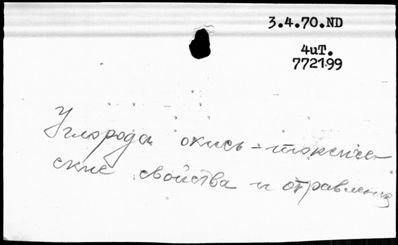 3.4.70.ND
4uT.
772199
Углерода окись-токсиче-
ские свойства и отравления